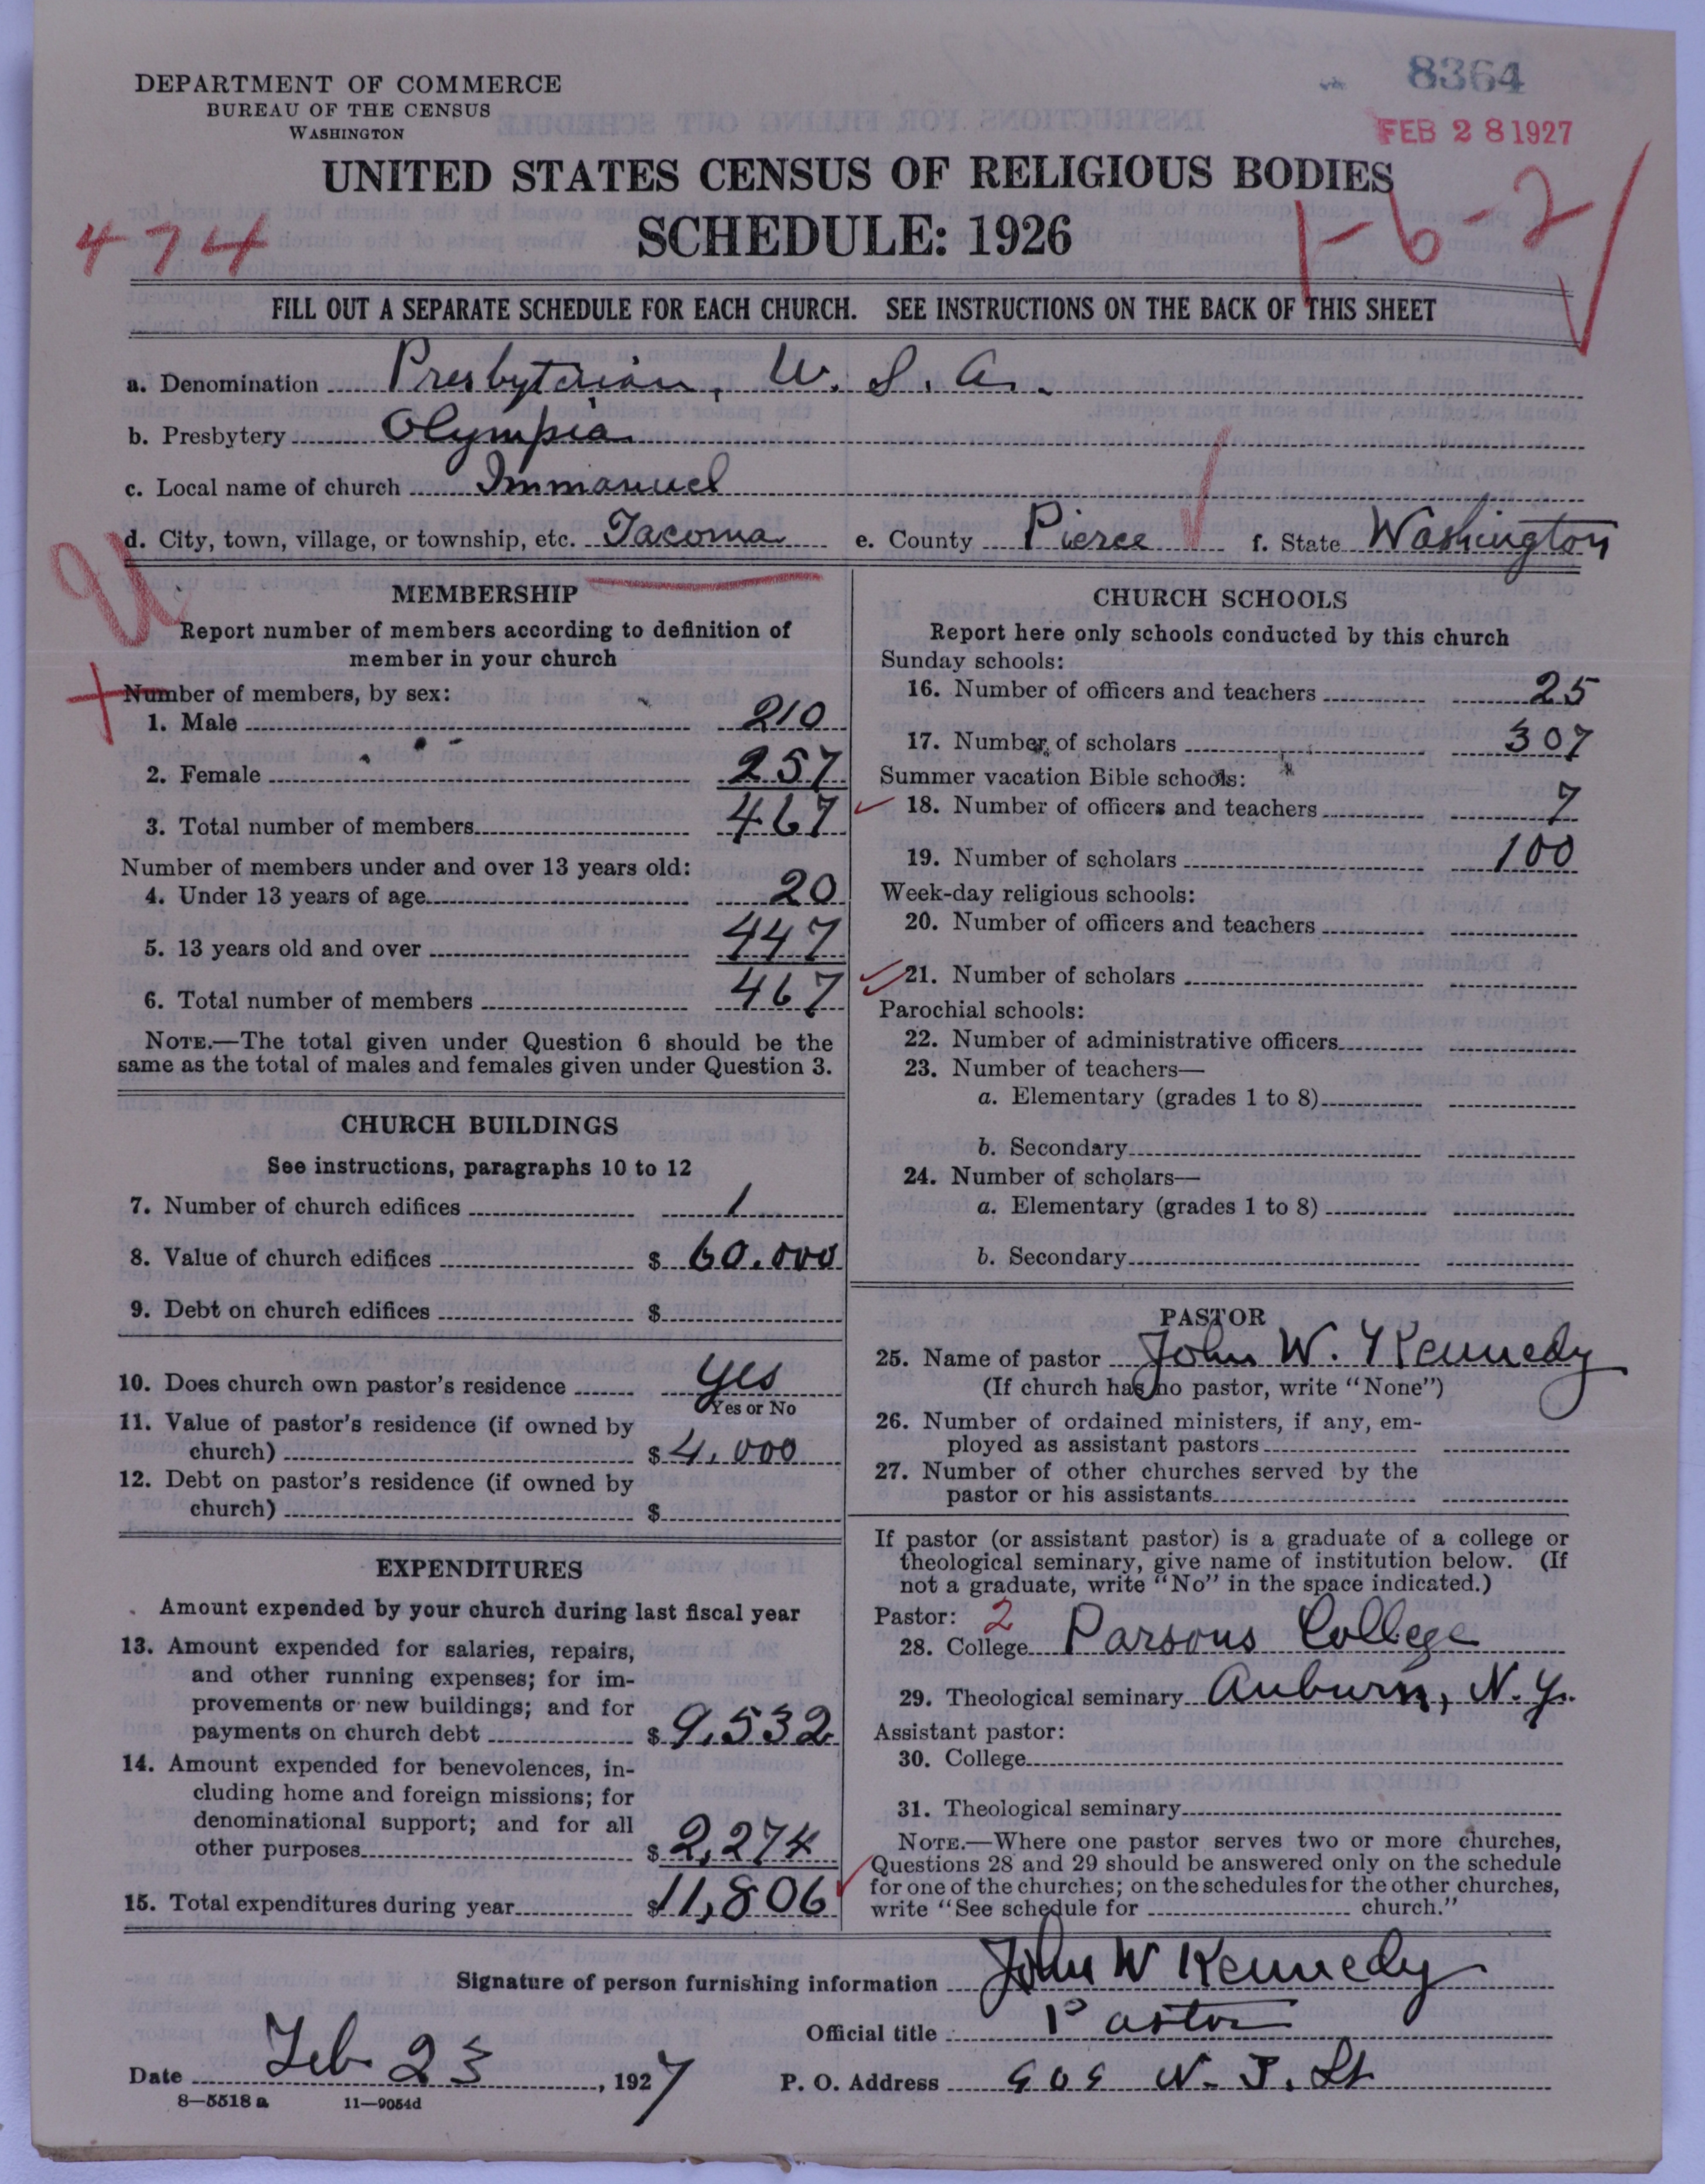 8364
DEPARTMENT OF COMMERCE
BUREAU OF THE CENSUS
WASHINGTON
FEB 28 1927
UNITED STATES CENSUS OF RELIGIOUS BODIES
SCHEDULE: 1926
474
1-6-2
FILL OUT A SEPARATE SCHEDULE FOR EACH CHURCH. SEE INSTRUCTIONS ON THE BACK OF THIS SHEET
a. Denomination Presbyterian, U. S. A.
b. Presbytery Olympia
c. Local name of church Immanuel
d. City, town, village, or township, etc. Tacoma e. County Pierce f. State Washington
MEMBERSHIP
Report number of members according to definition of
member in your church
Number of members, by sex:
1. Male 210
2. Female 257
3. Total number of members 467
Number of members under and over 13 years old:
4. Under 13 years of age 20
5. 13 years old and over 447
6. Total number of members 467
NOTE.—The total given under Question 6 should be the
same as the total of males and females given under Question 3.
CHURCH BUILDINGS
See instructions, paragraphs 10 to 12
7. Number of church edifices 1
8. Value of church edifices $ 60.000
9. Debt on church edifices $
10. Does church own pastor's residence yes
Yes or No
11. Value of pastor's residence (if owned by
church) $ 4,000
12. Debt on pastor's residence (if owned by
church) $
EXPENDITURES
Amount expended by your church during last fiscal year
13. Amount expended for salaries, repairs,
and other running expenses; for im-
provements or new buildings; and for
payments on church debt $ 9,532
14. Amount expended for benevolences, in-
cluding home and foreign missions; for
denominational support; and for all
other purposes $ 2,274
15. Total expenditures during year $ 11,806
CHURCH SCHOOLS
Report here only schools conducted by this church
Sunday schools:
16. Number of officers and teachers 25
17. Number of scholars 307
Summer vacation Bible schools:
18. Number of officers and teachers 7
19. Number of scholars 100
Week-day religious schools:
20. Number of officers and teachers
21. Number of scholars
Parochial schools:
22. Number of administrative officers
23. Number of teachers—
a. Elementary (grades 1 to 8)
b. Secondary
24. Number of scholars—
a. Elementary (grades 1 to 8)
b. Secondary
PASTOR
25. Name of pastor John W. Kennedy
(If church has no pastor, write "None")
26. Number of ordained ministers, if any, em-
ployed as assistant pastors
27. Number of other churches served by the
pastor or his assistants
If pastor (or assistant pastor) is a graduate of a college or
theological seminary, give name of institution below. (If
not a graduate, write "No" in the space indicated.)
Pastor: 2
28. College Parsons College
29. Theological seminary Auburn, N.Y.
Assistant pastor:
30. College
31. Theological seminary
NOTE.—Where one pastor serves two or more churches,
Questions 28 and 29 should be answered only on the schedule
for one of the churches; on the schedules for the other churches,
write "See schedule for church."
Signature of person furnishing information John W Kennedy
Official title Pastor
Date Feb 23, 1927 P. O. Address N. J. St
8—5518 a 11—9054d